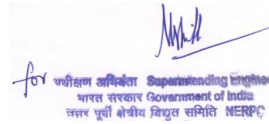 for अधीक्षण अभियंता Superintending Engineer
भारत सरकार Government of India
उत्तर पूर्वी क्षेत्रीय विद्युत समिति NERPC